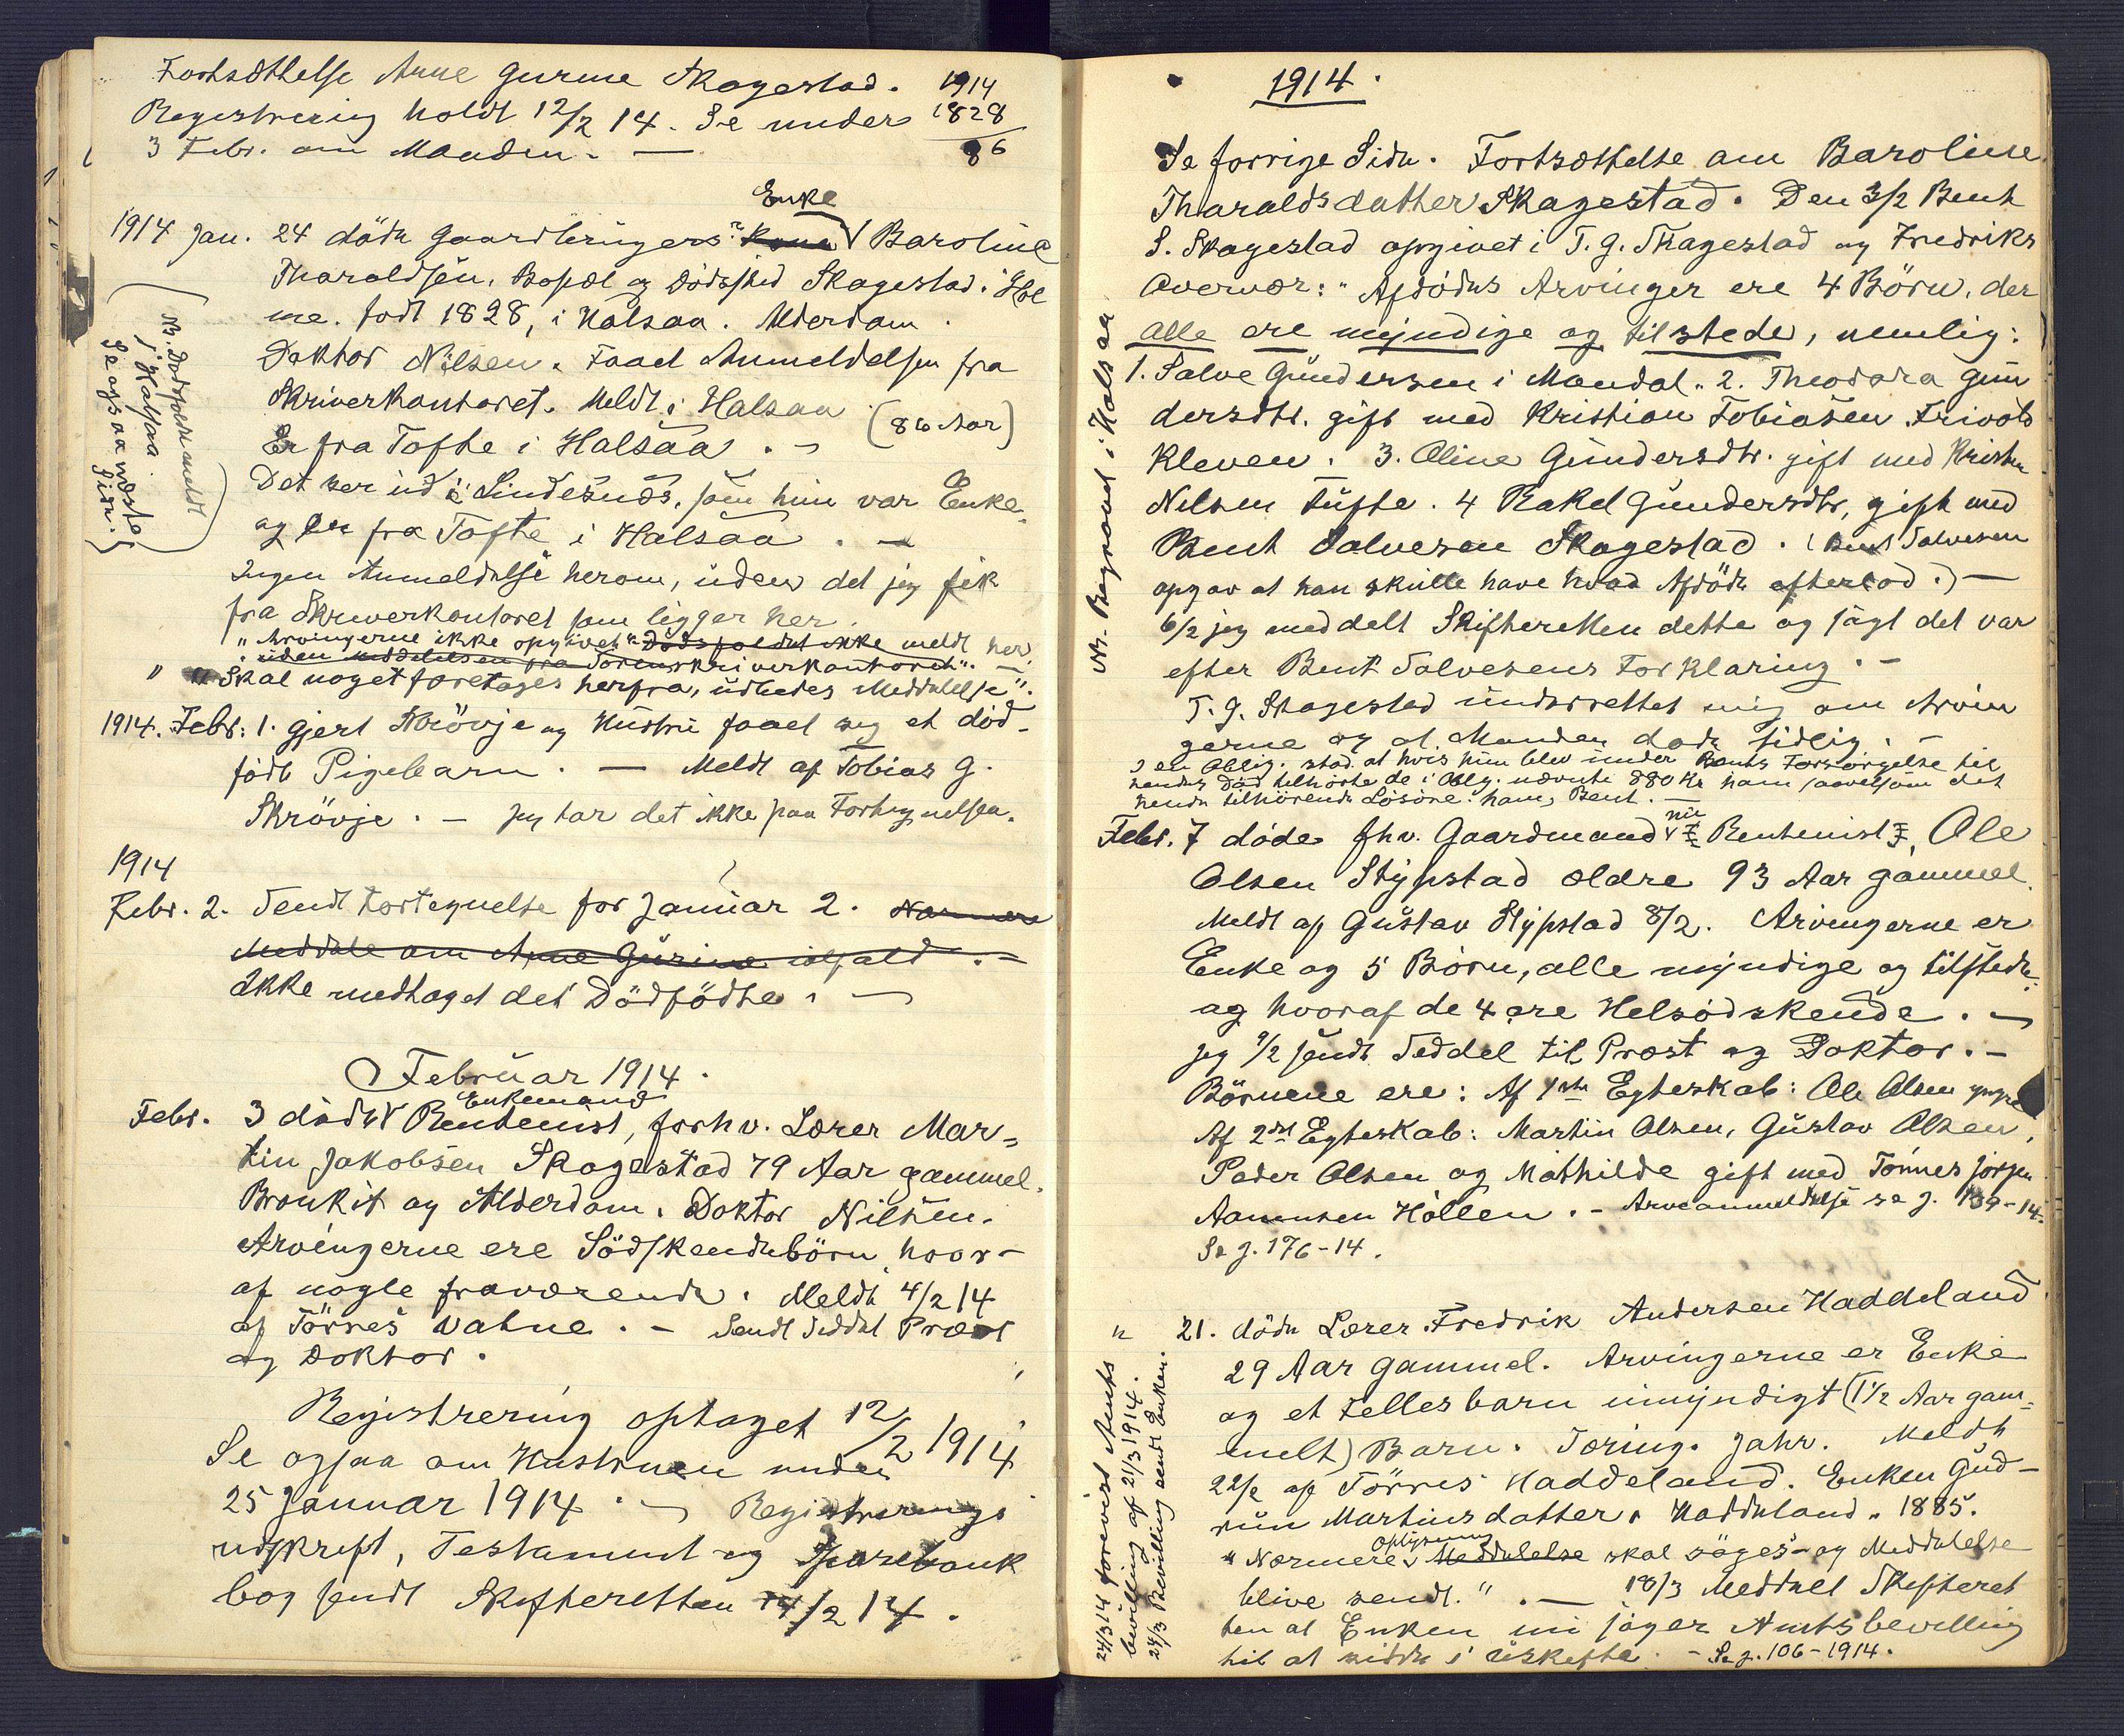 Fortsættelse Anne Gurine Skagestad.
Registrering holdt 12/2 14. Se under
3 Febr. om Manden. —
1914
1828
86
Enke
1914 Jan. 24 döde Gaardbrugers Kone Baroline
Tharaldsen, Bopæl og Dödssted Skagestad i Hol
me. Født 1828, i Halsaa. Alderdom.
Doktor Nilsen. Faaet Anmeldelsen fra
Skriverkontoret. Meldt i Halsaa
(86 Aar)
Er fra Tofte i Halsaa. —
Det ser ud i Lindesnæs, som hun var Enke
og er fra Tofte i Halsaa. —
Ingen Anmeldelse herom, uden det jeg fik
fra Skriverkontoret som ligger her.
"Arvingerne ikke opgivet" Dødsfaldet ikke meldt her
uden Meddelelsen fra Sorenskriverkontoret". —
" "Skal noget foretages herfra, udbedes Meddelelse".
Nb. Dødsfaldet meldt
i Halsaa.
Se ogsaa næste
Side.
1914. Febr: 1. Gjert Skrövje og Hustru faaet seg et død-
født Pigebarn. — Meldt af Tobias G.
Skrövje. — Jeg har det ikke paa Fortegnelsen.
1914
Febr. 2. Sendt Fortegnelse for Januar 2. Nærmere
Meddele om Anne Gurine ialfald. —
Ikke medtaget det Dödfödte. —
Februar 1914.
Enkemand
Febr. 3 døde Rentenist, forhv. Lærer Mar=
tin Jakobsen Skagestad 79 Aar gammel.
Bronkit og Alderdom. Doktor Nilsen.
Arvingerne ere Södskendebörn, hvor-
af nogle fraværende. Meldt 4/2 14
af Törres Valne. — Sendt Seddel Præst
og Doktor.
Registrering optaget 12/2 1914
Se ogsaa om Hustruen under
25 Januar 1914. — Registrerings
udskrift, Testament og Sparebank
bog sendt Skifteretten 14/2 14.
1914.
Se forrige Side. Fortsættelse om Baroline
Tharaldsdatter Skagestad. Den 3/2 Bent
S. Skagestad opgivet i T. G. Skagestad og Fredriks
Overvær: "Afdødes Arvinger ere 4 Börn, der
alle ere myndige og tilstede, nemlig:
1. Salve Gundersen i Mandal. 2. Theodora Gun
dersdtr. gift med Kristian Tobiasen Trivols
Kleven. 3. Oline Gundersdtr. gift med Kristen
Nilsen Tufte. 4 Rakel Gundersdtr, gift med
Bent Salvesen Skagestad. (Bent Salvesen
opgav at han skulle have hvad Afdöde efterlod.) —
6/2 jeg meddelt Skifteretten dette og sagt det var
efter Bent Salvesens Forklaring. —
T. G. Skagestad underrettet mig om Arvin
gerne og at Manden döde tidlig. —
I en Oblig. stod at hvis hun blev under Bents Forsørgelse til
hendes Død tilhörte de i Oblg. nævnte 880 Kr ham saavelsom det
hende tilhörende Løsöre: ham, Bent. —
Nb. Begravet i Halsaa
nu
Febr. 7 døde fhv. Gaardmand Rentenist, Ole
Olsen Stypstad ældre 93 Aar gammel
Meldt af Gustav Stypstad 8/2. Arvingerne er
Enke og 5 Börn, alle myndige og tilstede
og hvoraf de 4 ere Helsødskende. —
Jeg 9/2 sendt Seddel til Præst og Doktor. —
Börnene ere: Af 1ste Egteskab: Ole Olsen yngre
Af 2det Egteskab: Martin Olsen, Gustav Olsen,
Peder Olsen og Mathilde gift med Tönnes Jörgen
Aanensen Höllen. — Arveanmeldelse se J. 139-14.
Se J. 176-14.
" 21. døde Lærer Fredrik Andersen Haddeland
29 Aar gammel. Arvingerne er Enke
og et Fellesbarn umyndigt (1 1/2 Aar gam=
melt) Barn. Tæring. Jahr. Meldt
22/2 af Törres Haddeland. Enken Gud-
run Martinsdatter Haddeland. 1885.
oplysning
"Nærmere Meddelelse skal söges og Meddelelse
blive sendt." . — 18/3 Meddelt Skifteret
ten at Enken nu søger Amtsbevilling
til at sidde i uskifte. — Se J. 106-1914.
24/3 14 forevist Amts
bevilling af 21/3 1914.
24/3 Bevilling sendt Enken.